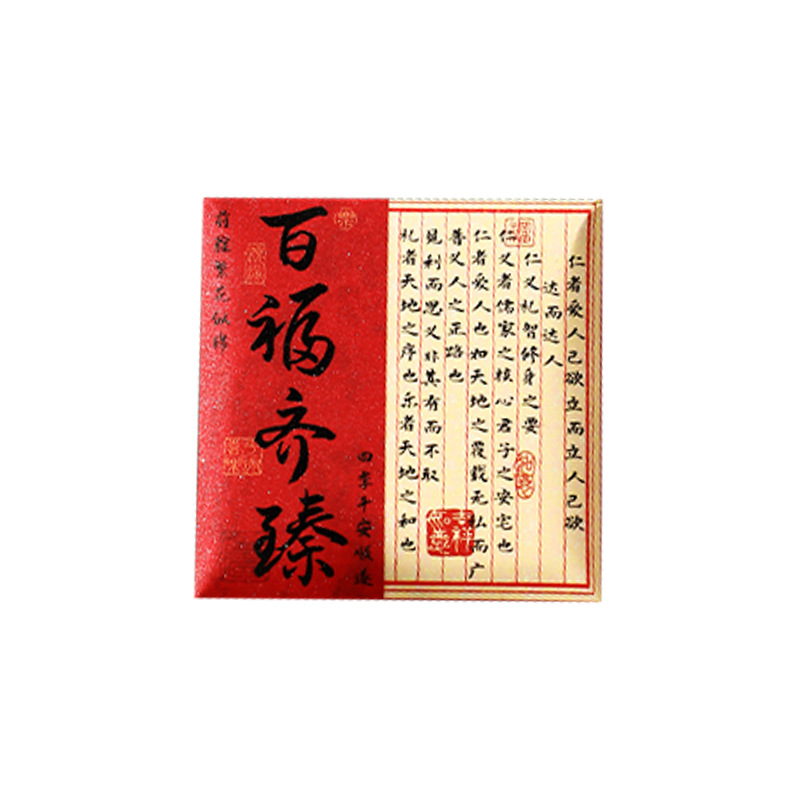 百福齐臻
前程繁花似锦
四季平安顺遂
仁者爱人己欲立而立人己欲
达而达人
仁义礼智修身之要
仁义者儒家之核心君子之安宅也
仁者爱人也如天地之覆载无私而广
普义人之正路也
见利而思义非其有而不取
礼者天地之序也乐者天地之和也
吉祥
如意